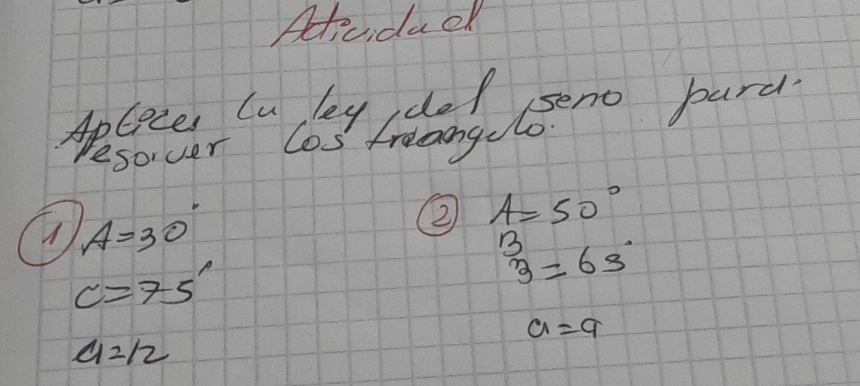 Actividad
Aplicar la ley del seno para
resolver los triangulo.
1 A=30° 2 A=50°
C=75° B
a=12 a=9